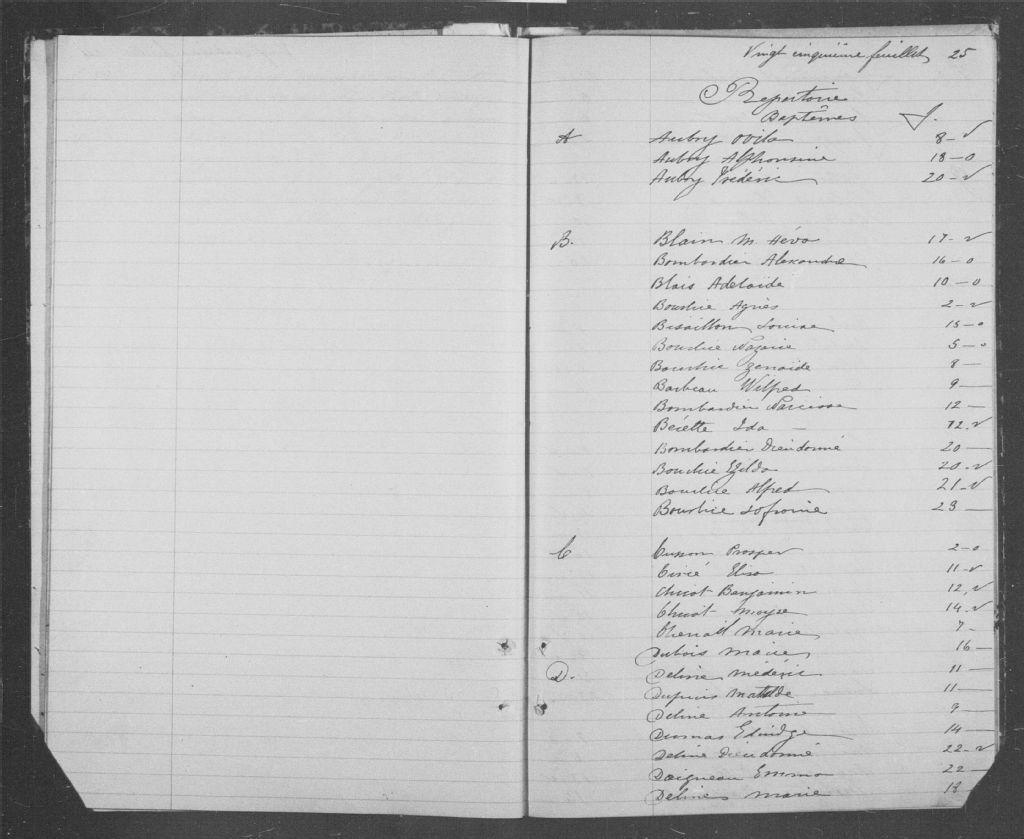 Vingt cinquième feuillet 25
Repertoire
Baptêmes f.
A Aubry Ovila 8 - v
Aubry Alphonsine 18 - o
Aubry Frédéric 20 - v
B. Blain M. Héva 17 - v
Bombardier Alexandre 16 - o
Blais Adelaïde 10 - o
Bourbie Agnès 2 - v
Bisaillon Louise 15 - o
Bourbie Nazarie 5 - o
Bourbie Zenaïde 8 -
Barbeau Wilfred 9 -
Bombardier Narcisse 12 -
Ida - 12. v
Bombardier Dieudonné 20 -
Bourbie Ezilda 20 - v
Bourbie Alfred 21 - v
Bourbie Sofronie 23 -
C Cusson Prosper 2 - o
Circé Elisa 11 - v
Chicot Benjamin 12, v
Chicot Moyse 14 - v
Marie 7 -
Dubois Marie 16 -
D. Deline Médéric 11 -
Dupuis Matilde 11 -
Deline Antoine 9 -
Dumas Edwidge 14 -
Deline Dieudonné 22 - v
Daigneau Emma 22 -
Deline Marie 18